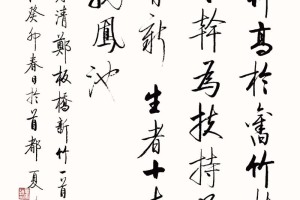 竹高於舊竹
幹為扶持
有新生者十
鳳池
清鄭板橋新竹一首
癸卯春日於首都夏